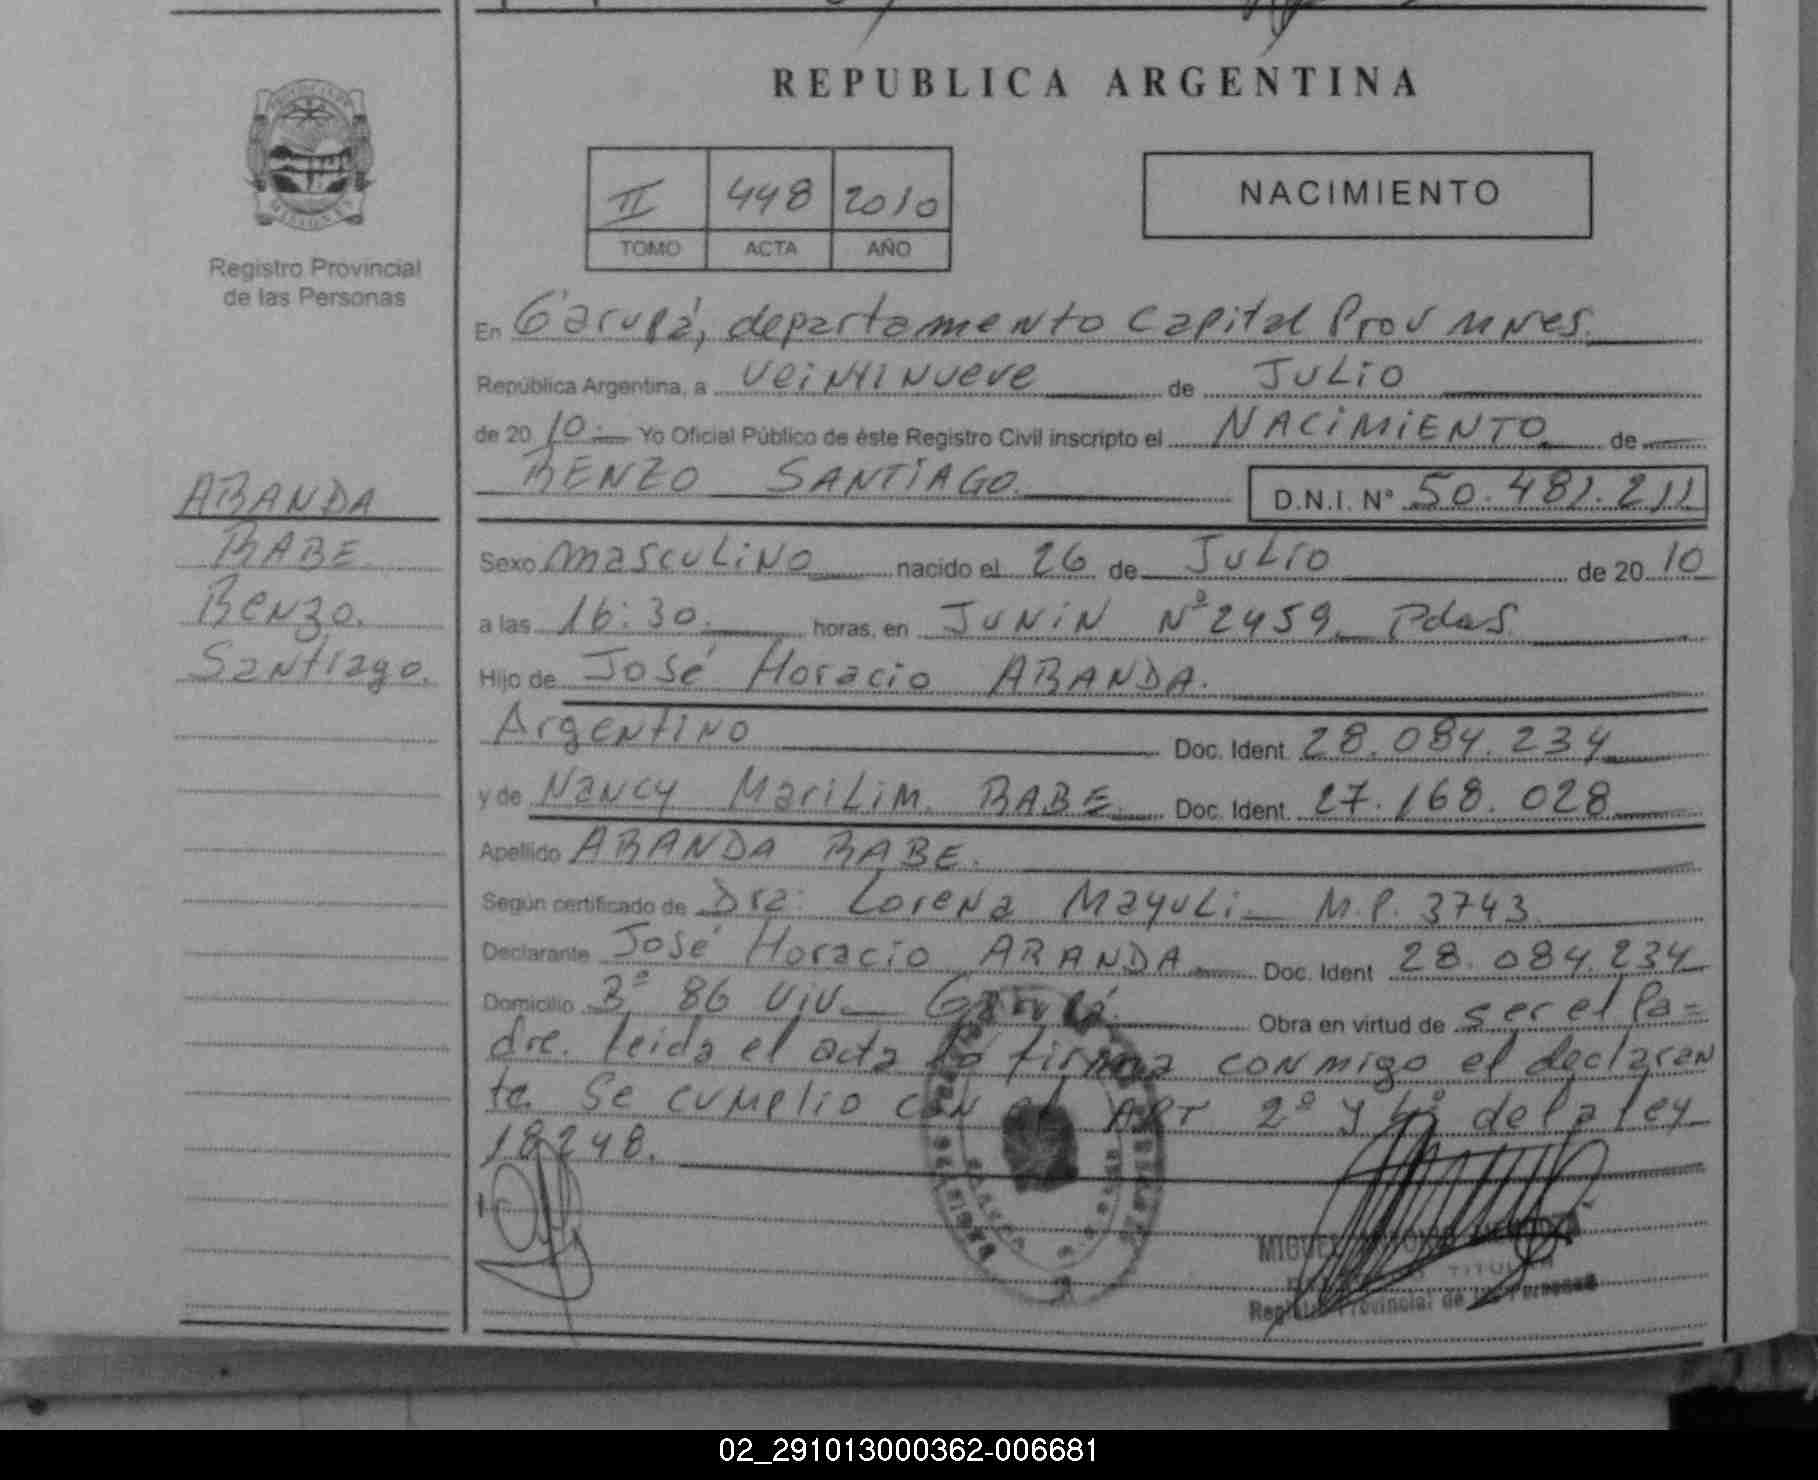 REPUBLICA ARGENTINA
II 448 2010
TOMO ACTA AÑO
NACIMIENTO
Registro Provincial
de las Personas
En Garupá, departamento Capital Prov Mnes.
República Argentina, a veintinueve de Julio
de 2010.- Yo Oficial Público de éste Registro Civil inscripto el NACIMIENTO de
RENZO SANTIAGO. D.N.I. Nº 50.481.211
ARANDA
RABE.
Renzo.
Santiago.
Sexo masculino nacido el 26 de Julio de 2010
a las 16:30. horas, en JUNIN Nº 2459. Pdas.
Hijo de José Horacio ARANDA.
Argentino Doc. Ident. 28.084.234
y de Nancy Marilim. RABE. Doc. Ident. 27.168.028
Apellido ARANDA RABE.
Según certificado de Dra: Lorena Mayuli. M.P. 3743.
Declarante José Horacio ARANDA. Doc. Ident 28.084.234
Domicilio Bº 86 viv. Garupá. Obra en virtud de ser el Pa=
dre. leida el acta la firma conmigo el declaran
te. Se cumplio con el ART 2º y 4º de la ley
18248.
MIGUEL
TITULAR
Registro Provincial de las Personas
02_291013000362-006681